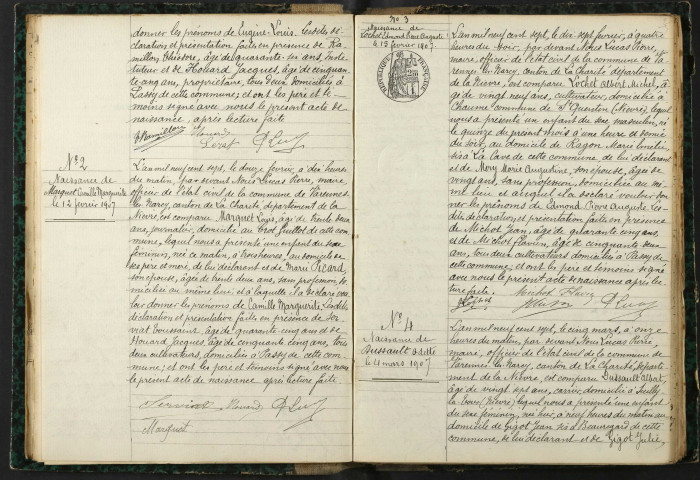 donner les prénoms de Eugène-Louis. Lesdites dé-
clarations et présentation faites en présence de Ra-
millon Théodore, âgé de quarante-six ans, Institu-
tuteur et de Houard Jacques, âgé de cinquan-
te ans, propriétaire, tous deux domiciliés à
Passy de cette commune; et ont les père et té-
moins signé avec nous le présent acte de
naissance, après lecture faite
Houard
N° 2
Naissance de
Marguet Camille Marguerite
le 12 février 1907
L'an mil neuf cent sept, le douze février, à dix heures
du matin, par devant Nous Lucas Pierre, maire,
officier de l'état civil de la commune de Varennes
les Narcy, canton de La Charité, département de la
Nièvre, est comparu Marguet Louis, âgé de trente deux
ans, journalier, domicilié au Crot Guillot de cette com-
mune, lequel nous a présenté une enfant du sexe
féminin, née ce matin, à trois heures, au domicile de
ses père et mère, de lui déclarant et de Marie Picard,
son épouse, âgée de trente deux ans, sans profession, do-
miciliée au même lieu; et à laquelle il a déclaré vou-
loir donner les prénoms de Camille Marguerite. Lesdites
déclaration et présentation faites en présence de Ser-
viat Toussaint, âgé de quarante cinq ans et de
Houard Jacques, âgé de cinquante cinq ans, tous
deux cultivateurs, domiciliés à Passy de cette com-
mune; et ont les père et témoins signé avec nous
le présent acte de naissance après lecture faite.
Serviat Houard
Marguet
N° 3
Naissance de
Lochet Edmond Pierre Auguste
le 15 février 1907.
L'an mil neuf cent sept, le dix sept février, à quatre
heures du soir, par devant Nous Lucas Pierre,
maire, officier de l'état civil de la commune de Va-
rennes les Narcy, canton de La Charité département
de la Nièvre, est comparu Lochet Albert Michel, âgé
de vingt neuf ans, cultivateur, domicilié à
Chaume commune de St Quentin (Nièvre); lequel
nous a présenté un enfant du sexe masculin, né
le quinze du présent mois à une heure et demie
du soir, au domicile de Ragon Marie
sis à La Cave de cette commune, de lui déclarant
et de Mory Marie Augustine, son épouse, âgée de
vingt ans, sans profession, domiciliée au mê-
me lieu et auquel il a déclaré vouloir don-
ner les prénoms de Edmond Pierre Auguste. Les-
dites déclaration et présentation faites en présence
de Michot Jean, âgé de quarante cinq ans,
et de Michot Flavien, âgé de cinquante deux
ans, tous deux cultivateurs domiciliés à Passy de
cette commune; et ont les père et témoins signé
avec nous le présent acte de naissance après lec-
ture faite.
Michot Flavien
N° 4
Naissance de
Bussault Odette
le 4 mars 1907
L'an mil neuf cent sept, le cinq mars, à onze
heures du matin, par devant Nous Lucas Pierre,
maire, officier de l'état civil de la commune de
Varennes les Narcy, canton de La Charité, départe-
ment de la Nièvre, est comparu Bussault Albert,
âgé de vingt sept ans, carrier, domicilié à Suilly
la Tour (Nièvre); lequel nous a présenté une enfant
du sexe féminin, née hier, à neuf heures du matin au
domicile de Gigot Jean sis à Beauregard de cette
commune, de lui déclarant et de Gigot Julie,